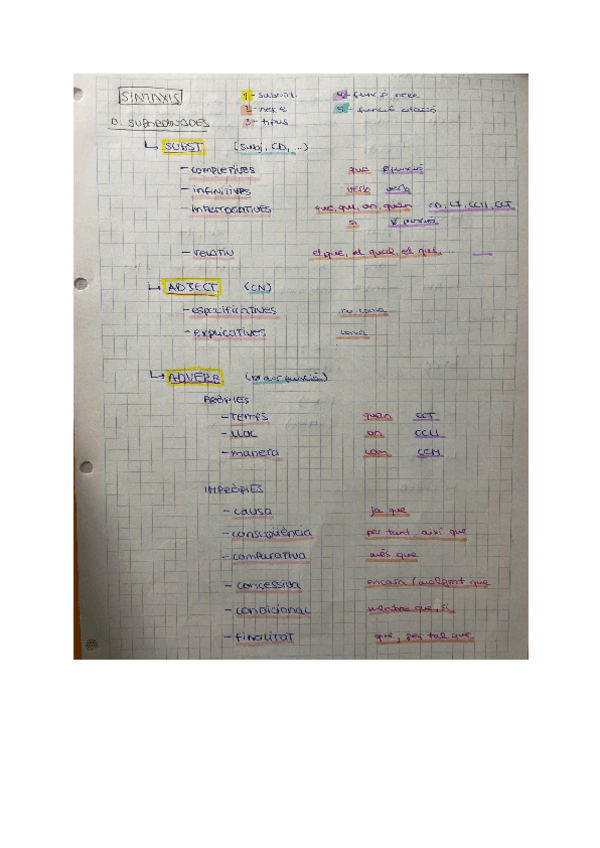 SINTAXIS
1 - subord.
2 - nexe
3 - tipus
4 - funció nexe
5 - funció oració
O. SUBORDINADES
SUBST (Subj, CD, ...)
- completives que
- infinitives verb verb
- interrogatives que, qui, on, quan CD, CI, CCLL, CCT
si
- relatiu el que, el qual, el qui ...
ADJECT (CN)
- especificatives no coma
- explicatives coma
ADVERB
PRÒPIES
- TEMPS quan CCT
- lloc on CCLL
- manera com CCM
IMPRÒPIES
- causa ja que
- conseqüència per tant, així que
- comparativa més que
- concessiva encara / malgrat que
- condicional mentre que, si
- finalitat que, per tal que